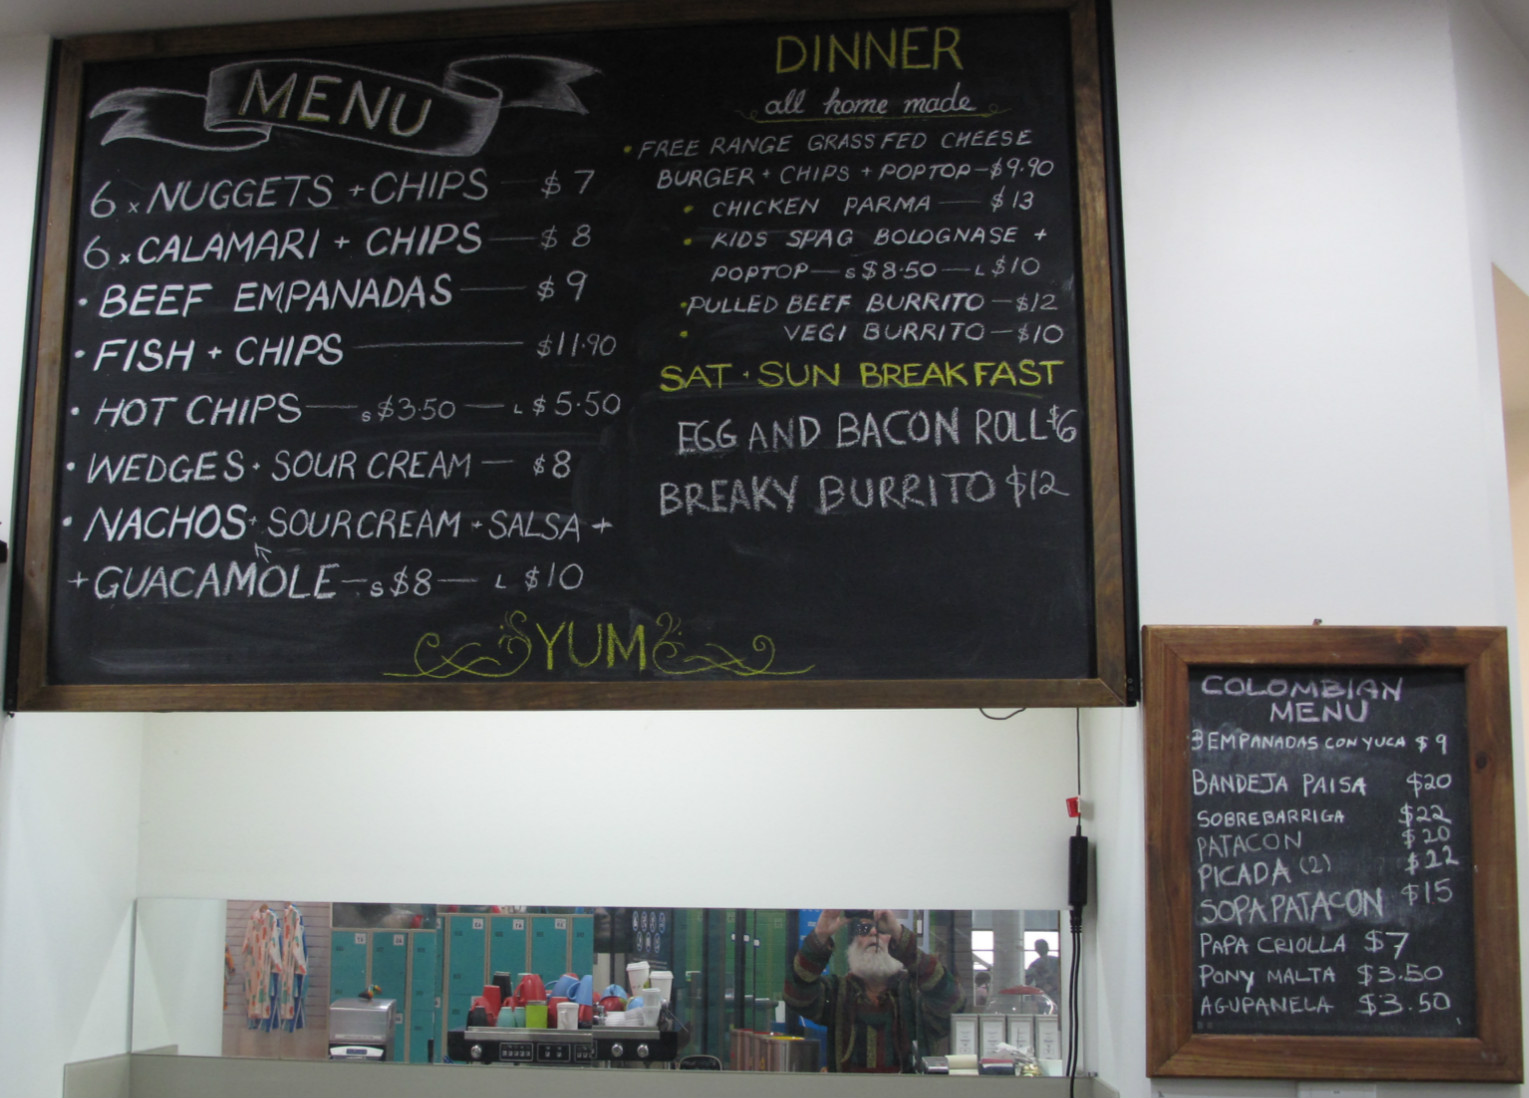 MENU
6 x NUGGETS + CHIPS — $7
6 x CALAMARI + CHIPS — $8
• BEEF EMPANADAS — $9
• FISH + CHIPS — $11.90
• HOT CHIPS — S $3.50 — L $5.50
• WEDGES · SOUR CREAM — $8
• NACHOS + SOUR CREAM + SALSA +
+ GUACAMOLE — S $8 — L $10
YUM
DINNER
all home made
• FREE RANGE GRASS FED CHEESE
BURGER + CHIPS + POPTOP — $9.90
• CHICKEN PARMA — $13
• KIDS SPAG BOLOGNASE +
POPTOP — S $8.50 — L $10
• PULLED BEEF BURRITO — $12
• VEGI BURRITO — $10
SAT · SUN BREAKFAST
EGG AND BACON ROLL $6
BREAKY BURRITO $12
COLOMBIAN
MENU
3 EMPANADAS CON YUCA $9
BANDEJA PAISA $20
SOBREBARRIGA $22
PATACON $20
PICADA (2) $22
SOPA PATACON $15
PAPA CRIOLLA $7
PONY MALTA $3.50
AGUPANELA $3.50